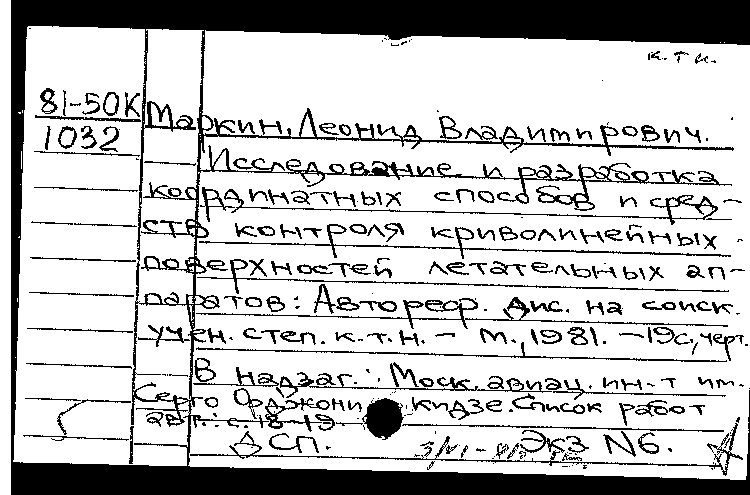 к.т.н.
81-50К
1032
Маркин, Леонид Владимирович.
Исследование и разработка
координатных способов и сред-
ств контроля криволинейных
поверхностей летательных ап-
паратов: Автореф. дис. на соиск.
учен. степ. к.т.н. - М., 1981. - 19с, черт.
В надзаг.: Моск. авиац. ин-т им.
Серго Орджоникидзе. Список работ
авт.: с. 18-19.
ДСП.
Экз N6.